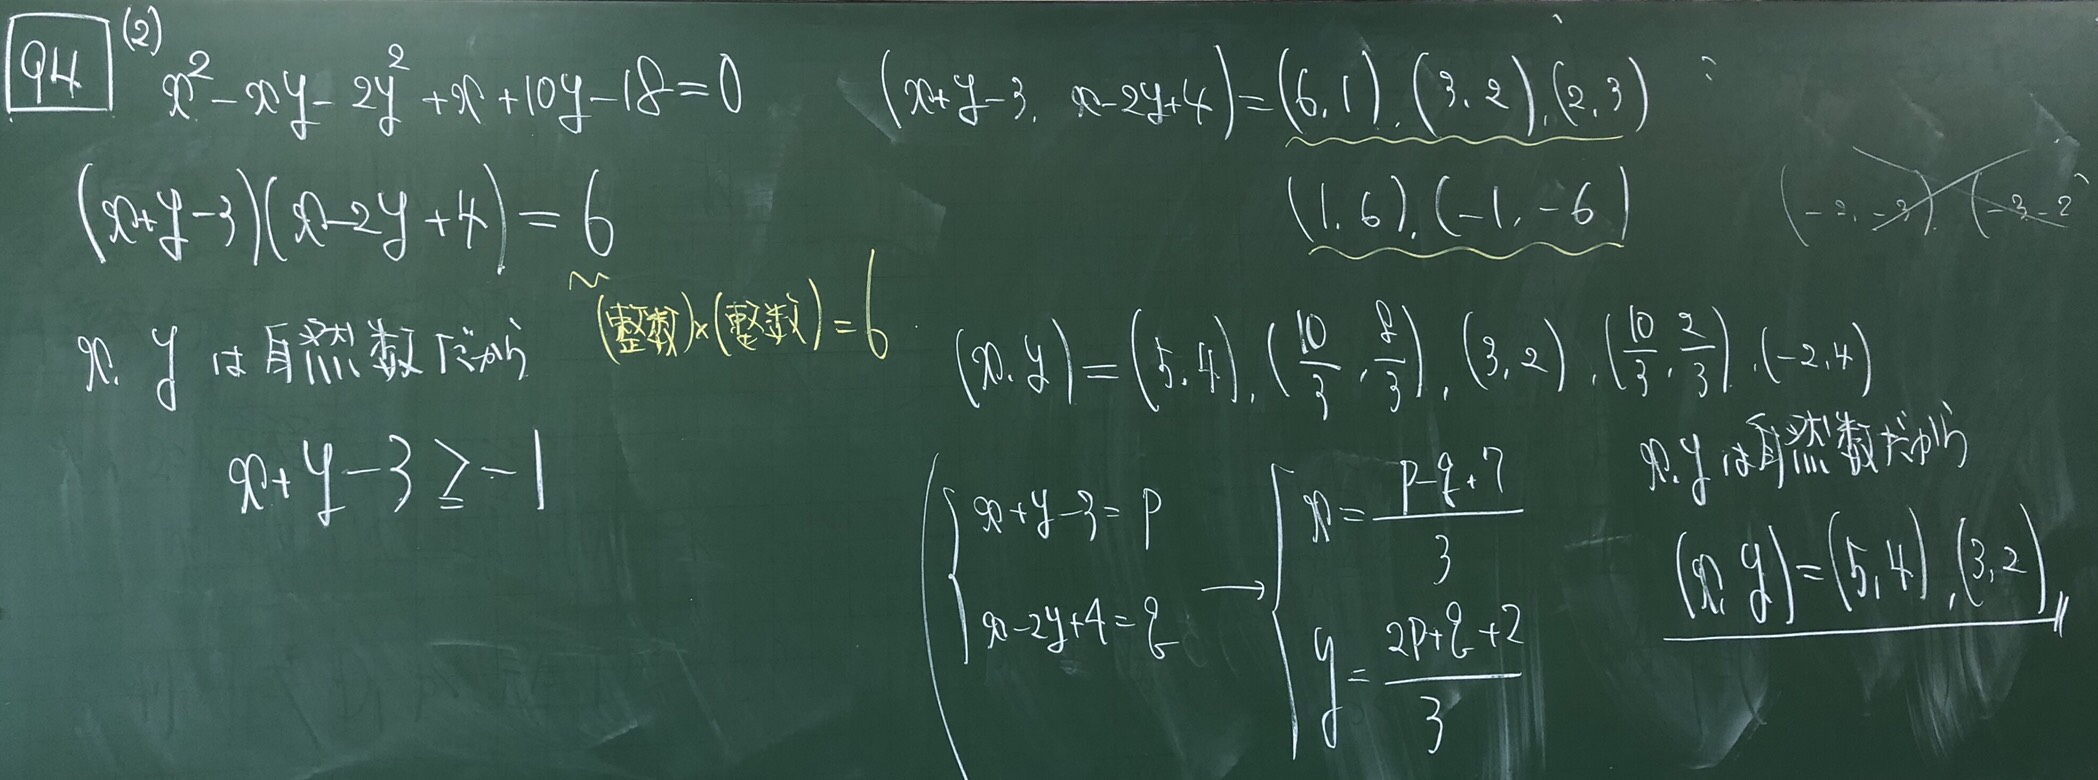 94 (2)
x² - xy - 2y² + x + 10y - 18 = 0
(x+y-3)(x-2y+4) = 6
(整数)×(整数) = 6
x, y は自然数だから
x+y-3 ≧ -1
(x+y-3, x-2y+4) = (6, 1), (3, 2), (2, 3)
(1, 6), (-1, -6)
(-2, -3) (-3, -2)
(x, y) = (5, 4), (10/3, 8/3), (3, 2), (10/3, 2/3), (-2, 4)
x+y-3 = p
x-2y+4 = q
→
x = (p-q+7)/3
y = (2p+q+2)/3
x, y は自然数だから
(x, y) = (5, 4), (3, 2)